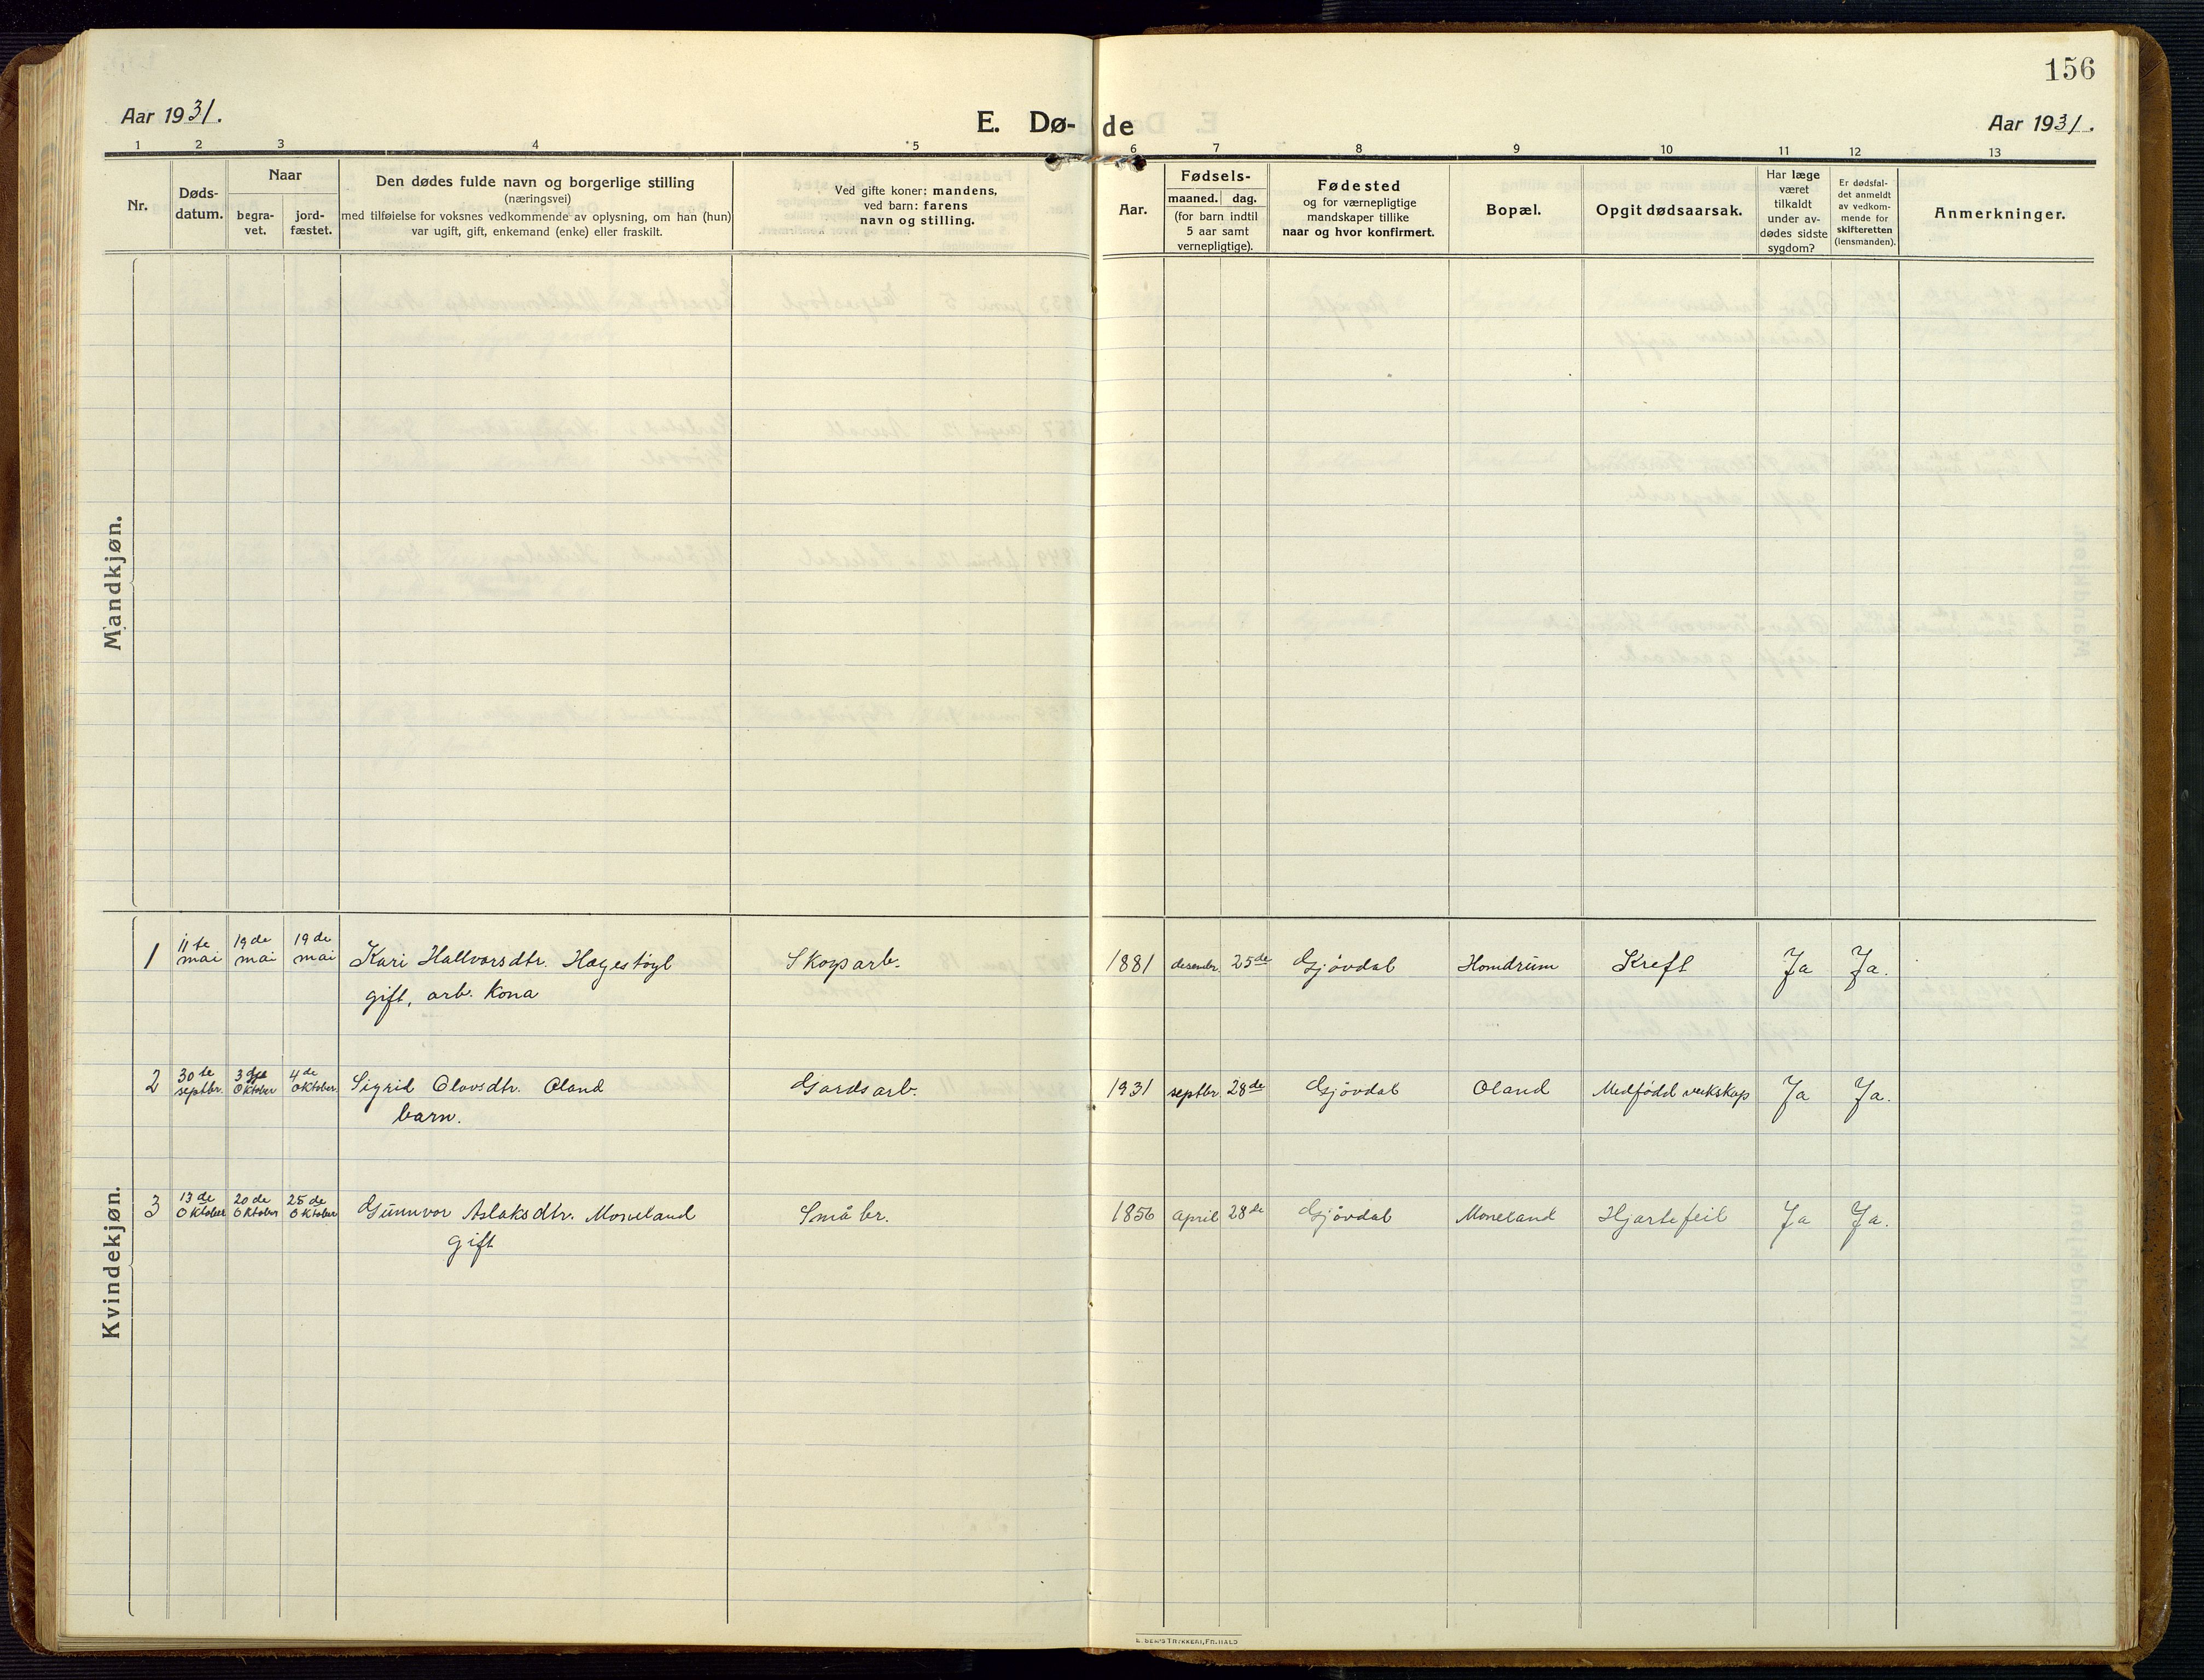 156
Aar 1931.
E. Dø- de
Aar 1931.
1 2 3 4 5 6 7 8 9 10 11 12 13
Nr.
Døds-
datum.
Naar
begra-
vet.
jord-
fæstet.
Den dødes fulde navn og borgerlige stilling
(næringsvei)
med tilføielse for voksnes vedkommende av oplysning, om han (hun)
var ugift, gift, enkemand (enke) eller fraskilt.
Ved gifte koner: mandens,
ved barn: farens
navn og stilling.
Aar.
Fødsels-
maaned. dag.
(for barn indtil
5 aar samt
vernepligtige).
Fødested
og for værnepligtige
mandskaper tillike
naar og hvor konfirmert.
Bopæl.
Opgit dødsaarsak.
Har læge
været
tilkaldt
under av-
dødes sidste
sygdom?
Er dødsfal-
det anmeldt
av vedkom-
mende for
skifteretten
(lensmanden).
Anmerkninger.
Mandkjøn.
Kvindekjøn.
11te 19de 19de
1 mai mai mai Kari Hallvorsdtr. Hægestøyl Skogsarb. 1881 desembr. 25de Gjövdal Homdrum Kreft Ja Ja.
gift, arb. kona
30te 3dje 4de
2 septbr. Oktober Oktober. Sigrid Olovsdtr. Oland Gardsarb. 1931 septbr. 28de Gjövdal Oland Medfödd veikskap Ja Ja.
barn.
13de 20de 25de
3 Oktober Oktober Oktober Gunnvor Aslaksdtr. Moneland Småbr. 1856 April 28de Gjövdal Moneland Hjartefeil Ja Ja.
gift